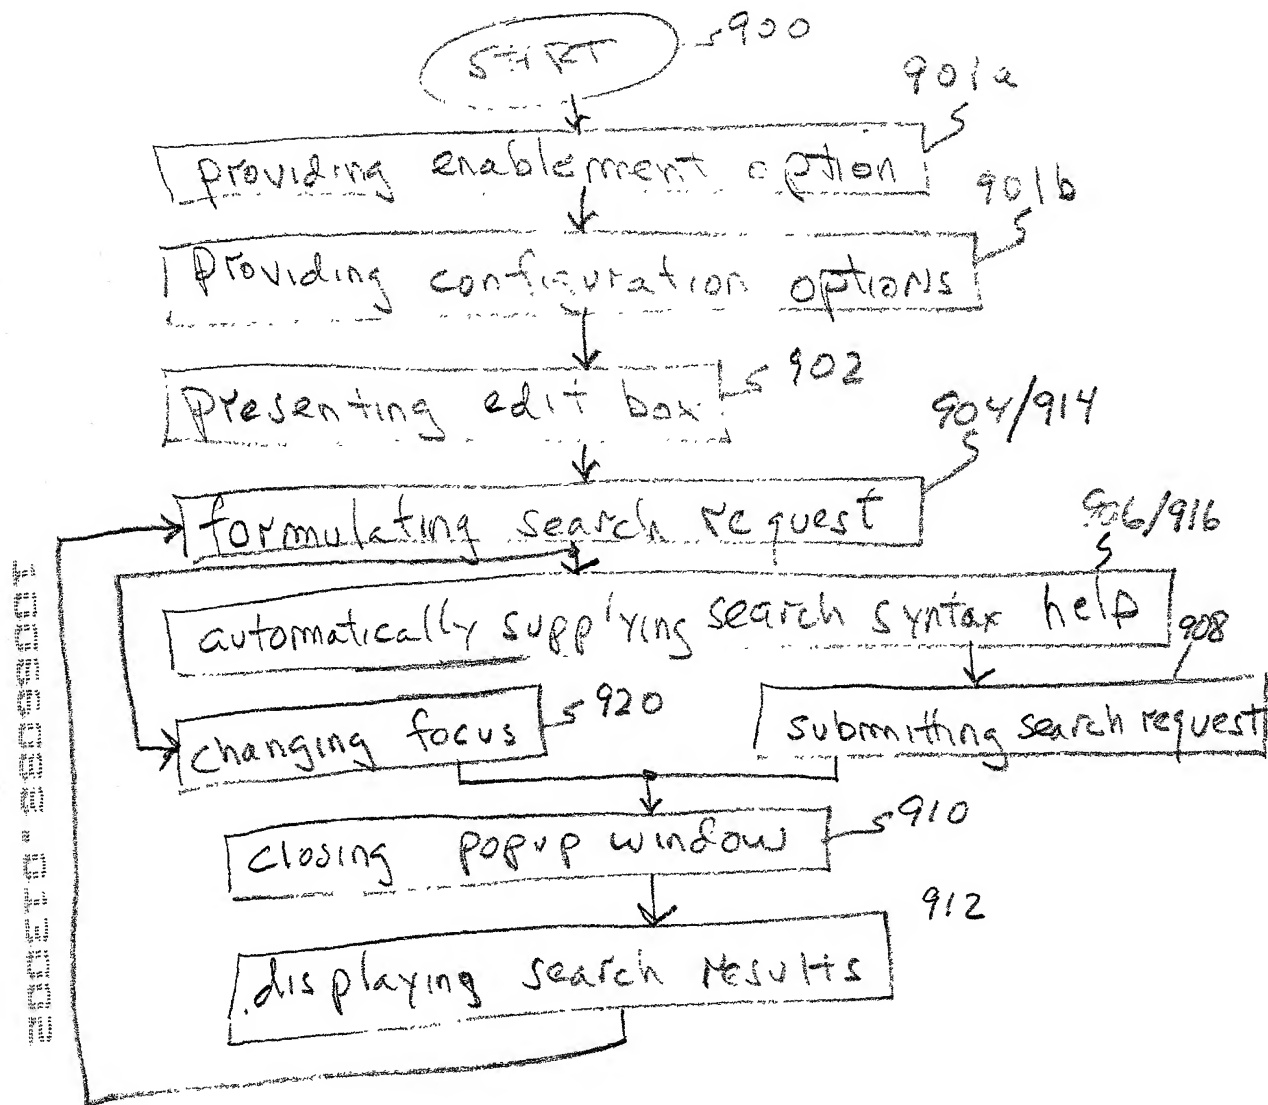 START
900
901a
providing enablement option
901b
providing configuration options
902
presenting edit box
904/914
formulating search request
906/916
automatically supplying search syntax help
908
920
changing focus
submitting search request
910
closing popup window
912
displaying search results
10066088.013002